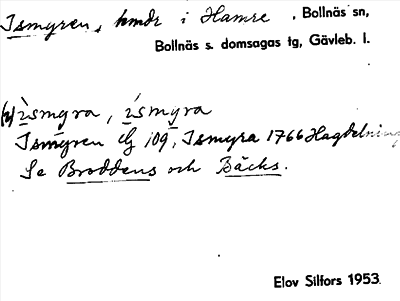 Ismyren, hmdr i Hamre, Bollnäs sn,
Bollnäs s. domsagas tg, Gävleb. l.
ìsmyra, ísmyra
Ismyren 109, Ismyra 1766 Hagdelning
Se Broddens och Bäcks.
Elov Silfors 1953.